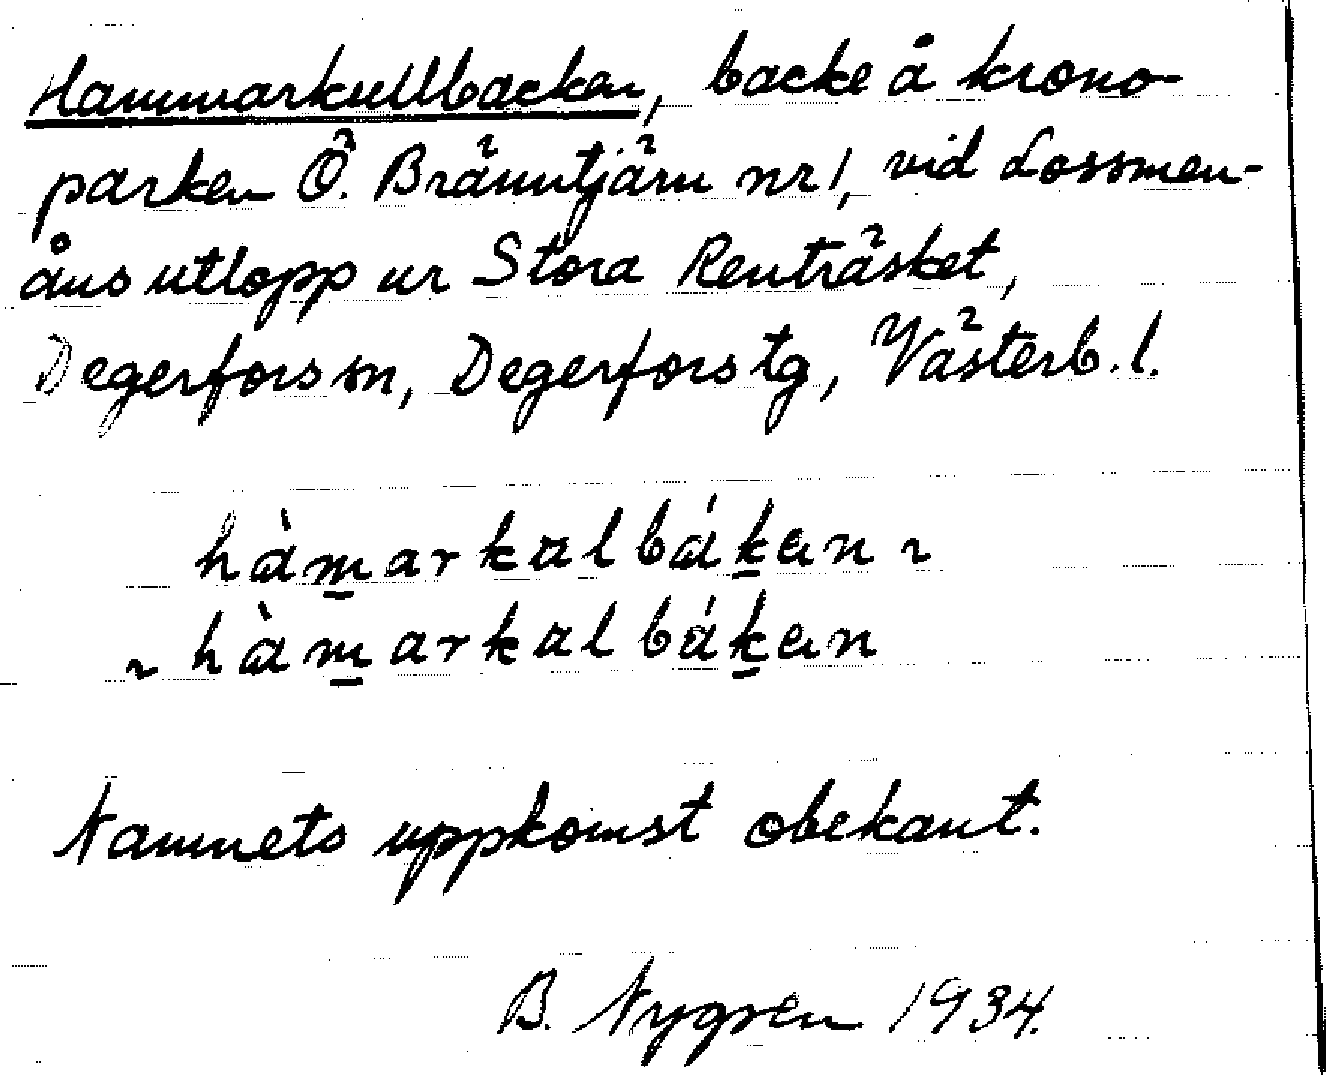 Hammarkullbacken, backe å krono-
parken Ö. Bränntjärn nr 1, vid Lossmen-
åns utlopp ur Stora Renträsket,
Degerfors sn, Degerfors tg, Västerb. l.
hàm̲arkalbák̲en ~
~ hàm̲arkalbák̲en
Namnets uppkomst obekant.
B. Nygren 1934.